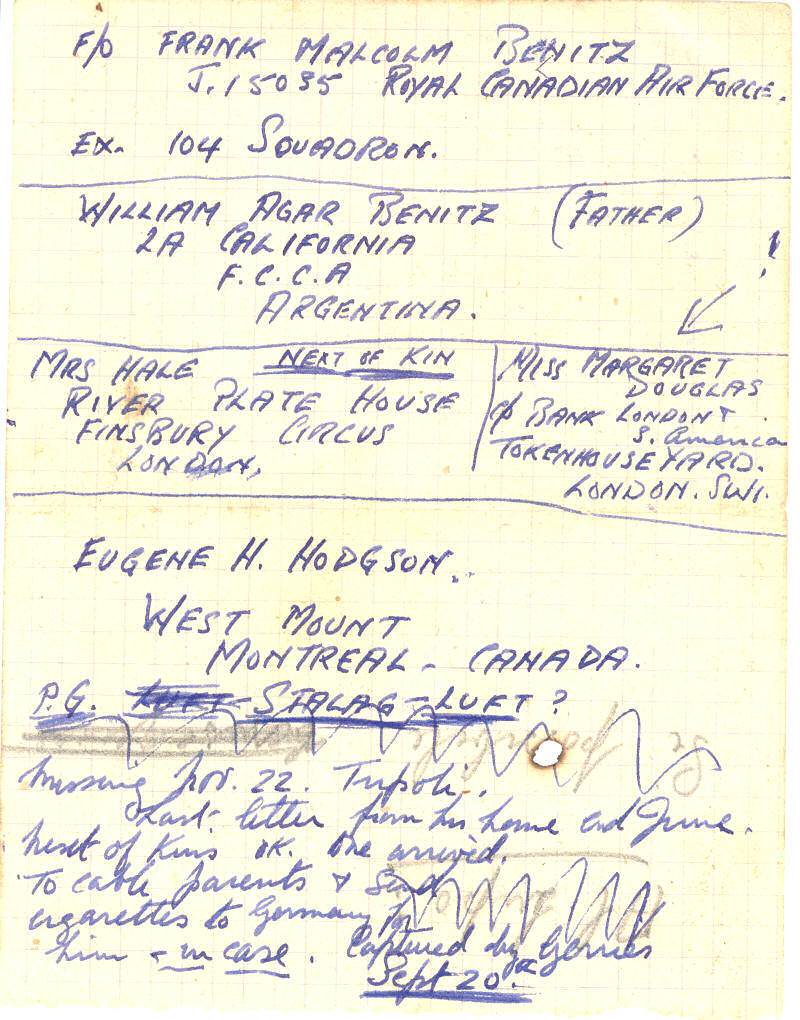 F/O FRANK MALCOLM BENITZ
J.15035 ROYAL CANADIAN AIR FORCE.
EX- 104 SQUADRON.
WILLIAM AGAR BENITZ (FATHER)
LA CALIFORNIA
F.C.C.A
ARGENTINA.
!
MRS HALE NEXT OF KIN
RIVER PLATE HOUSE
FINSBURY CIRCUS
LONDON,
MISS MARGARET
DOUGLAS
c/o BANK LONDON &
S. America
TOKENHOUSE YARD.
LONDON. SW1.
EUGENE H. HODGSON.
WEST MOUNT
MONTREAL - CANADA.
P.G. LUFT STALAG-LUFT?
Missing Nov. 22. Tripoli.
Last letter from his home end June.
Next of Kins OK. One arrived.
To cable parents & send
cigarettes to Germany for
him - in case. Captured by Gerries
Sept 20.